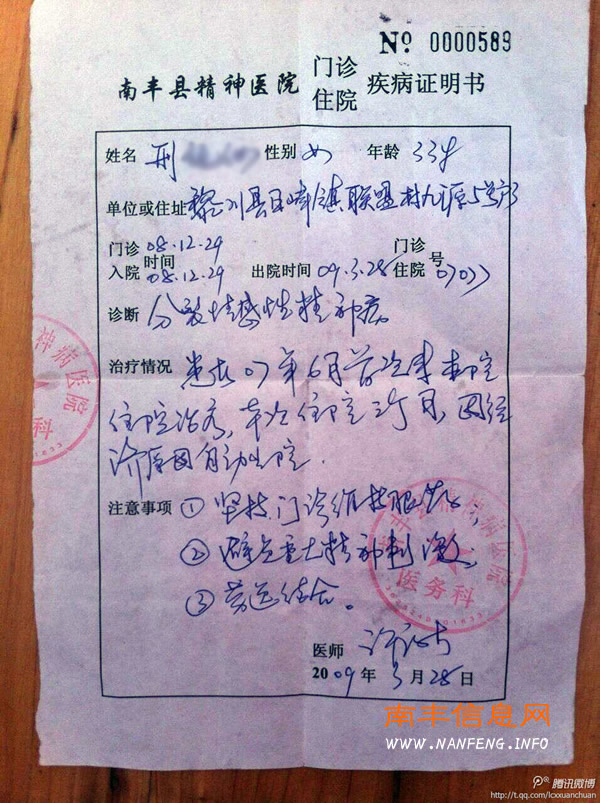 № 0000589
南丰县精神医院 门诊 住院 疾病证明书
姓名 刑 性别 女 年龄 33岁
单位或住址 黎川县日峰镇联盟村九源5号
门诊 08.12.29
时间
入院 08.12.29 出院时间 09.3.28 门诊 住院 号 07077
诊断 分裂情感性精神病
治疗情况 患者07年6月首次来本院
住院治疗，本次住院3个月，因经
济原因自动出院。
注意事项 ① 坚持门诊维持服药，
② 避免重大精神刺激，
③ 劳逸结合。
医师
2009年3月28日
医务科
南丰信息网
WWW.NANFENG.INFO
腾讯微博
http://t.qq.com/lcxxuanchuan